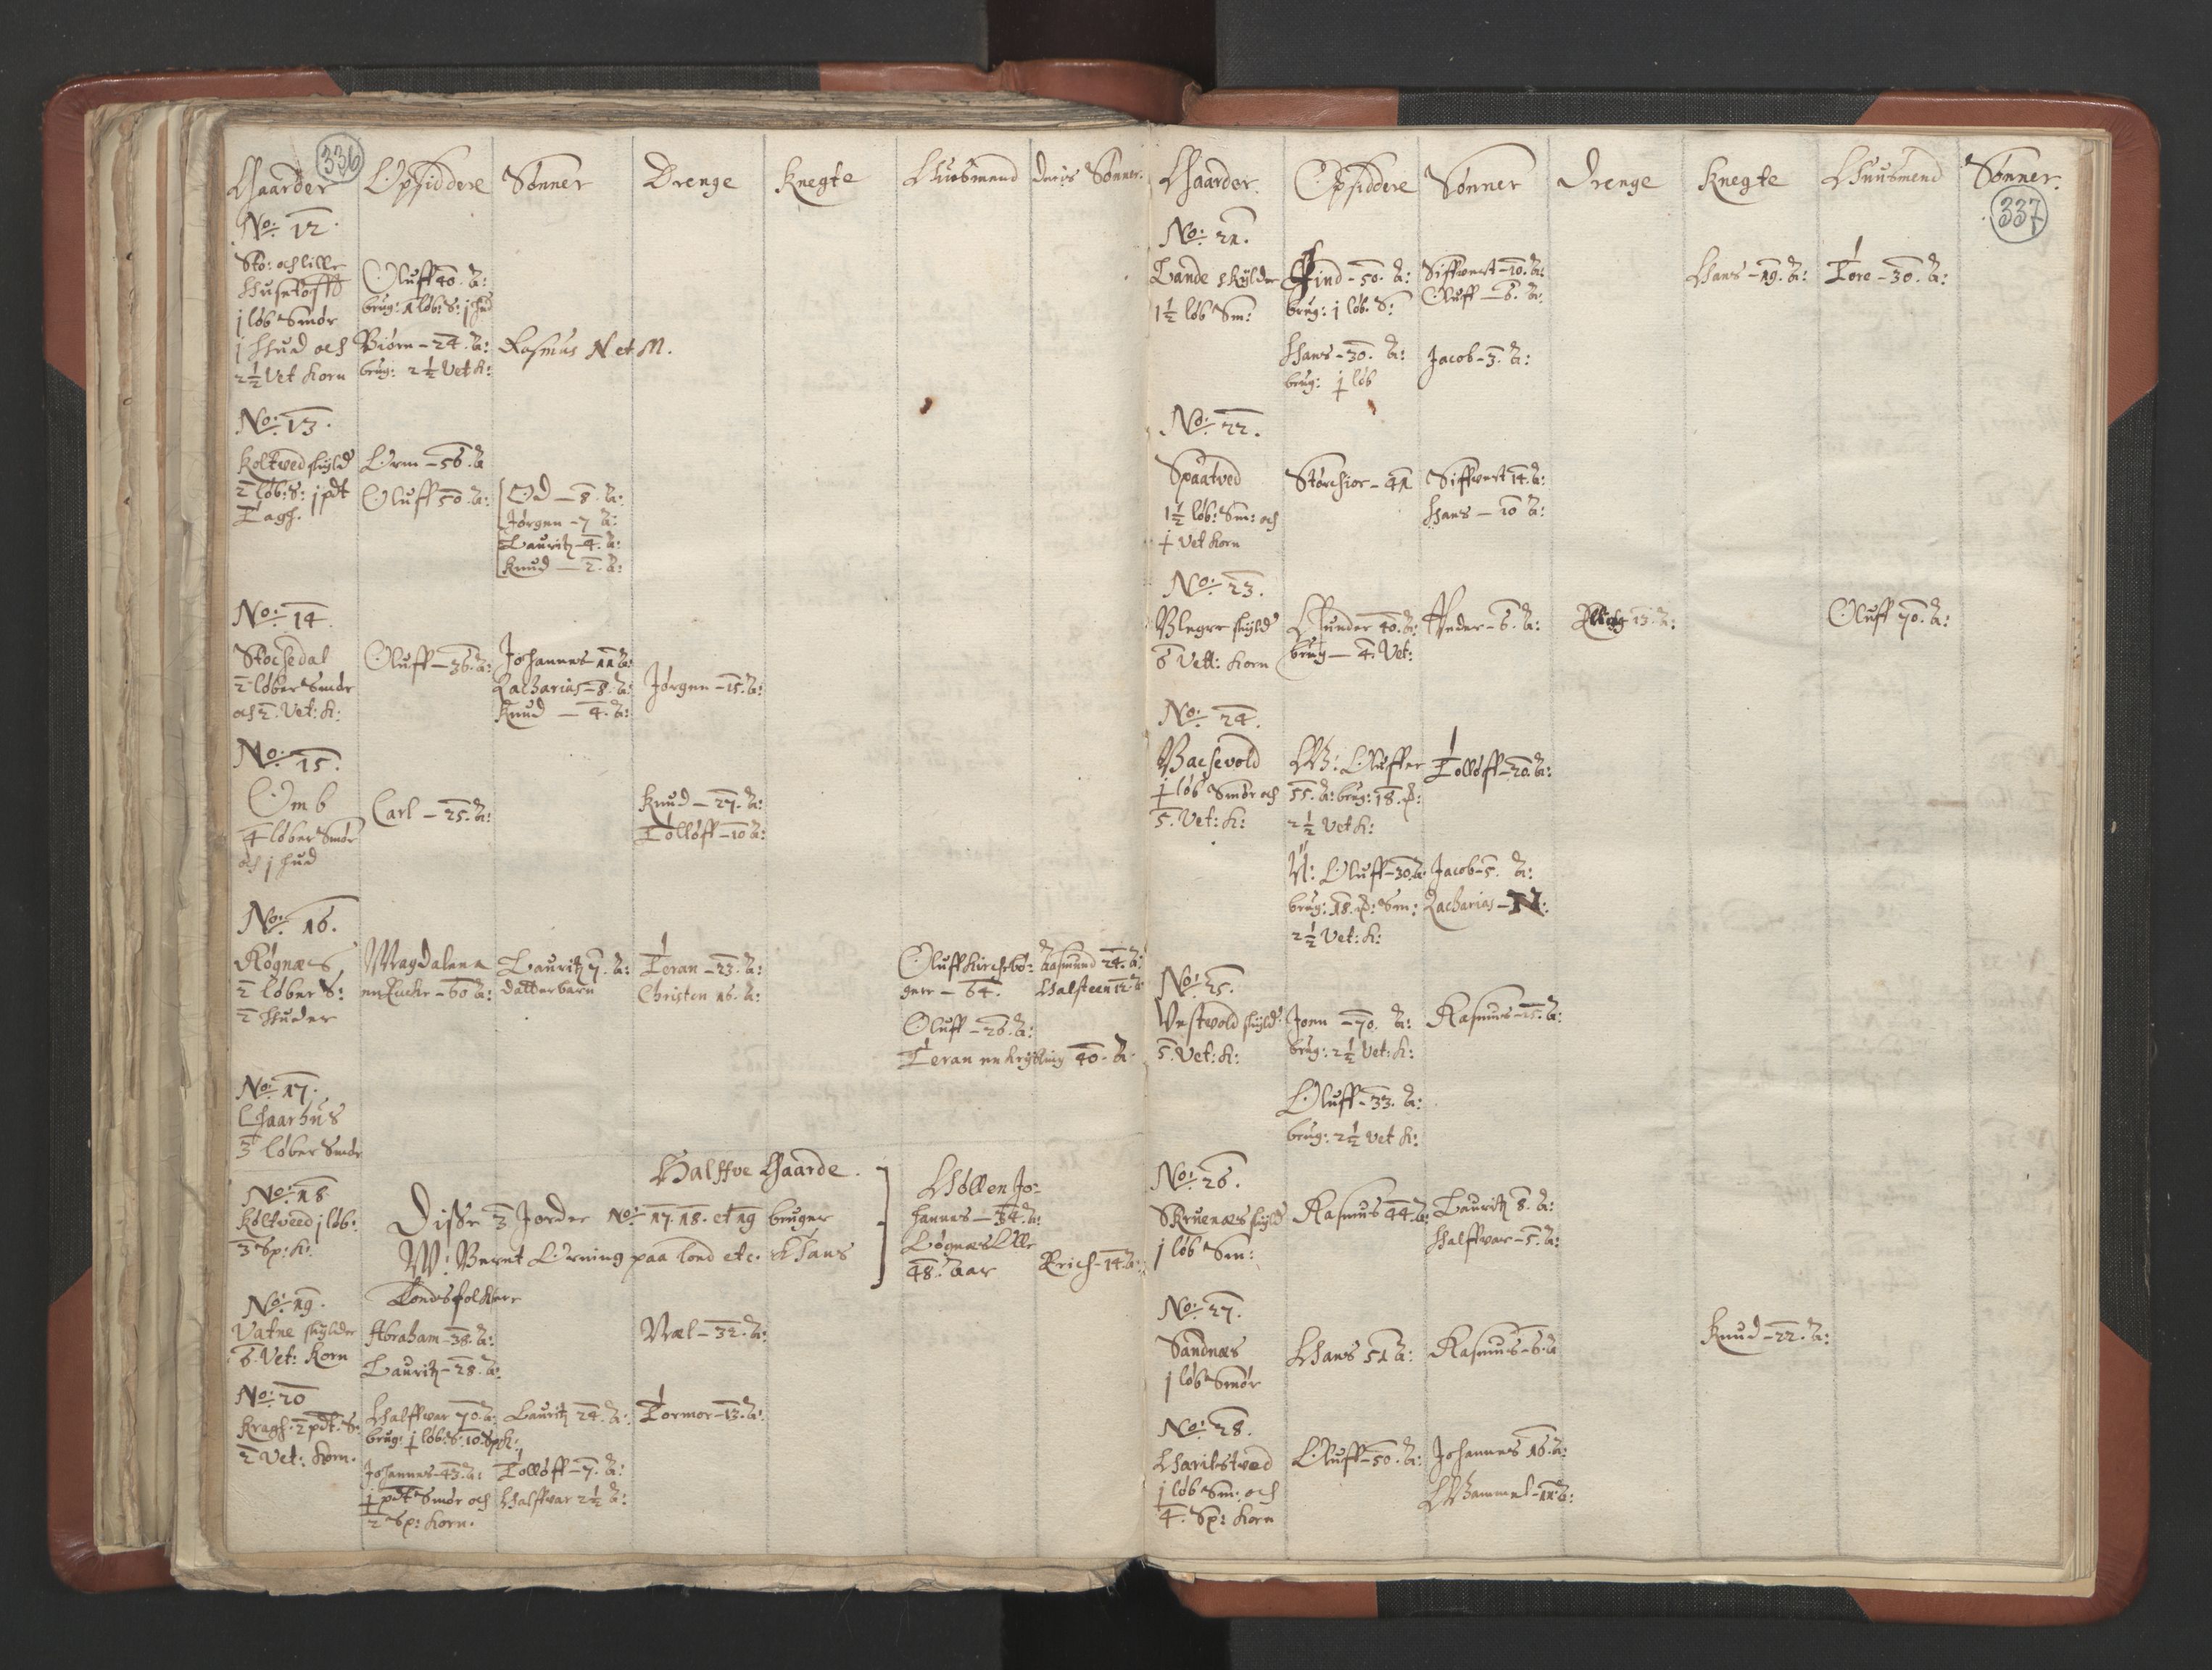 336
Gaarder Opsiddere Sønner Drenge Knegte Huusmend deris Sønner
No: 12.
Sto: och lille
Husetofft
j løb Smør
j Hud och
2½ Vet Korn
Oluff 40. A:
brug: 1 løb: S: j hud
Biørn - 24. A:
brug: 2½ Vet K:
Rasmus N et M.
No: 13.
Koltved skyld
2 løb: S: j pdt
Tagh.
Orm - 56. A
Oluff 50. A:
Od - 8. A:
Jørgen - 7 A:
Lauritz - 4. A:
Knud - 2. A:
No: 14.
Stochedal
2 løber Smør
och 2. Vet: K:
Oluff - 36. A:
Johannes - 11 A:
Zacharias - 8. A:
Knud - 4. A:
Jørgen - 15. A:
No: 15.
Omb
4 løber Smør
och j hud
Carl - 25. A:
Knud - 27. A:
Tolløff - 10 A:
No: 16.
Røgnæs
2 løber S:
2 Huder
Magdalena
en Encke - 60 A:
Lauritz 7. A:
datterbarn
Teran - 23. A:
Christen 16. A:
Oluff Kirchebø-
gere - 64.
Oluff - 26. A:
Teran en krybling 40. A.
Aasmund 24. A:
Halsteen 12. A
No: 17.
Haarhus
3 løber Smør
No: 18
Køltveed j løb:
3 Sp: K:
Halffve Gaarde.
Disse 3 Jorder No: 17. 18. et 19 bruger
W: Bernt Orning paa lond etc. Hans
Tondsfolkere
Høllen Jo-
hannes - 34. A:
Løgnæs Olle
48. Aar
Erich - 14. A:
No: 19.
Vatne skylder
6. Vet: Korn
Abraham - 38. A:
Lauritz - 28. A:
Næl - 32. A:
No: 20
Kragh. 2 pdt. S:
2 Vet: Korn.
Halffvar 70. A:
brug: j løb: S. 10 Sp K:
Johannes - 43. A:
j pdt Smør och
2 Sp: Korn.
Lauritz 24. A:
Tolløff - 7. A:
Halffvar 2½ A:
Tormor - 13. A:
337
Gaarder. Opsiddere Sønner Drenge Knegte Huusmend Sønner.
No: 21.
Lande skylder
1½ løb Sm:
Find - 50. A:
brug: j løb. S:
Hans - 30. A:
brug: ½ løb
Siffwert - 10. A:
Oluff - 6. A:
Jacob - 3. A:
Hans - 19. A:
Tore - 30. A:
No: 22.
Spaatved
1½ løb: Sm: och
½ Vet Korn
Storchior - 41
Siffwert 14. A:
Hans - 10 A:
No: 23.
Blegre skyld
6 Vett: Korn
Gunder 40. A:
brug - 4. Vet:
Peder - 6. A:
13. A:
Oluff 70. A:
No: 24.
Bachevold
½ løb Smør och
5. Vet: K:
W: Oluffer
55. A: brug: 18. p:
2½ Vet K:
U: Oluff - 30. A:
brug: 18. p: Sm:
2½ Vet: K:
Tolløff - 20. A:
Jacob - 5. A:
Zacharias
No: 25.
Vestvold skyld
5. Vet: K:
Jonn - 70. A:
brug: 2½ Vet: K:
Oluff - 33. A:
brug: 2½ Vet K:
Rasmus - 25. A:
No: 26.
Skruenæs skyld
j løb Sm:
Rasmus 44. A:
Lauritz 8. A:
Halffvar - 5. A:
No: 27.
Sandnæs
j løb Smør
Hans 51 A:
Rasmus - 6. A
Knud - 22. A:
No: 28.
Harildstvad
½ løb Sm: och
4. Sp: Korn
Oluff - 50. A:
Johannes 16. A:
Gammel - 11. A: